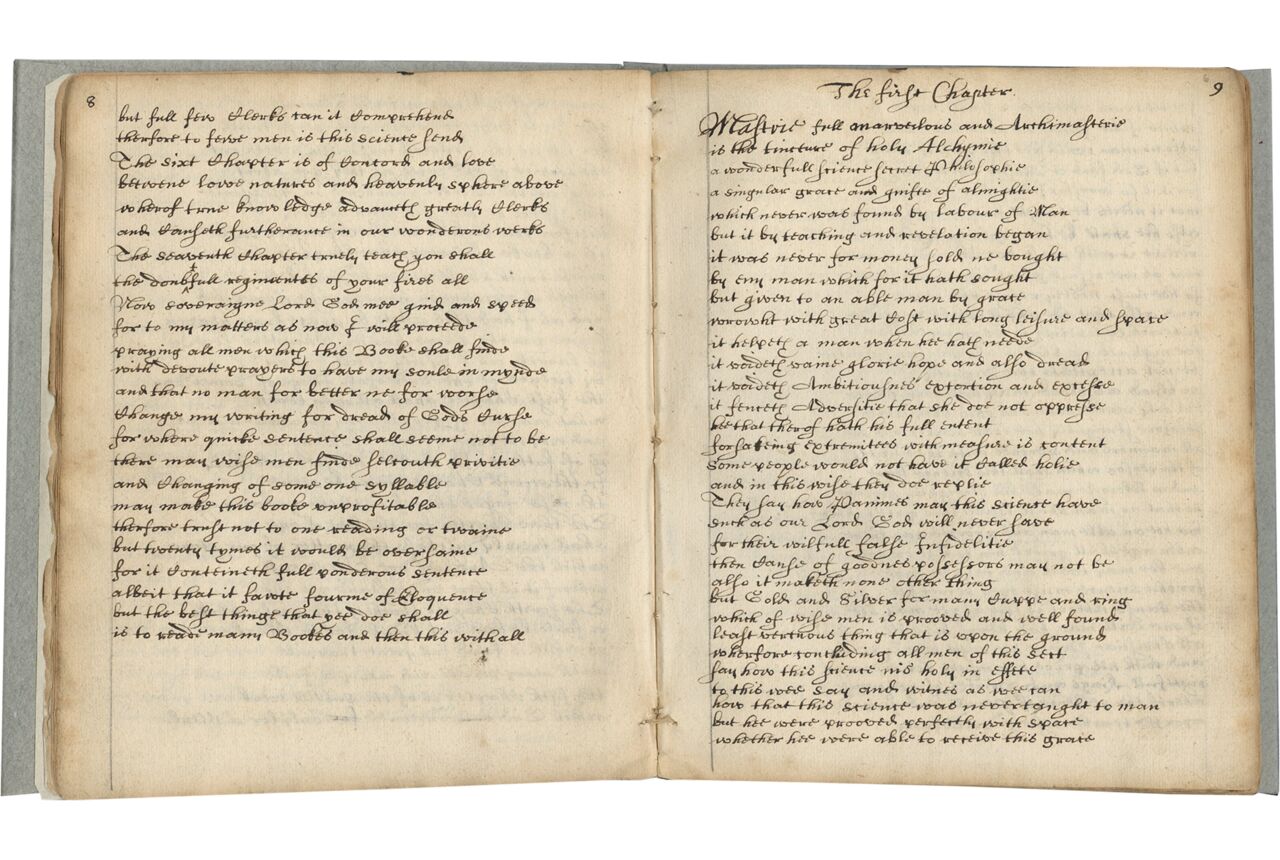 8
but full few Clerks can it Comprehend
therfore to fewe men is this science send
The sixt Chapter is of Concord and love
betwene lowe natures and heavenly sphere above
wherof true knowledge advanceth greatly Clerks
and Causeth furtherance in our wonderous werks
The seaventh Chapter truely teach you shall
the doubtfull regimentes of your fires all
Now soveraigne Lord God mee guid and speed
for to my matters as now I will proceede
praying all men which this Booke shall finde
with devoute prayers to have my soule in mynde
and that no man for better ne for worse
Change my writing for dread of Gods Curse
for where quicke sentence shall seeme not to be
there may wise men finde selcouth privitie
and Changing of some one syllable
may make this booke unprofitable
therfore trust not to one reading or twaine
but twenty tymes it would be oversaine
for it Conteineth full ponderous sentence
albeit that it favte fourme of Eloquence
but the best thinge that yee doe shall
is to reade many Bookes and then this withall
The first Chapter.
9
Mastrie full marveilous and Archimasterie
is the tincture of holy Alchymie
a wonderfull science secret Philosophie
a singular grace and guifte of almightie
which never was found by labour of Man
but it by teaching and revelation began
it was never for money sold ne bought
by eny man which for it hath sought
but given to an able man by grace
wrovht with great Cost with long leisure and space
it helpeth a man when hee hath neede
it voideth vaine glorie hope and also dread
it voideth Ambitiousnes extortion and excesse
it fenceth Adversitie that she doe not oppresse
hee that therof hath his full entent
forsakeing extremitees with measure is content
Some people would not have it Called holie
and in this wise they doe replie
They say how Panimes may this science have
such as our Lord God will never save
for their wilfull false Infidelitie
then Cause of goodnes possessors may not be
also it maketh none other thing
but Gold and Silver for mony Cuppe and ring
which of wise men is prooved and well found
least vertuous thing that is upon the ground
wherfore concluding all men of this sect
say how this science nis holy in effete
to this wee say and witnes as wee can
how that this science was never taught to man
but hee were prooved perfectly with space
whether hee were able to receive this grace